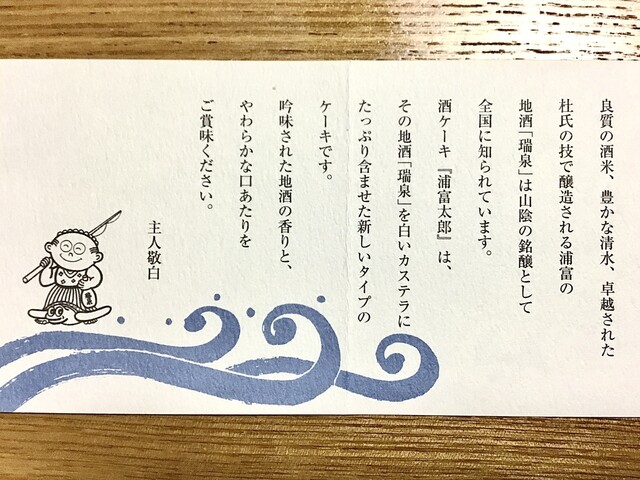 良質の酒米、豊かな清水、卓越された
杜氏の技で醸造される浦富の
地酒「瑞泉」は山陰の銘醸として
全国に知られています。
酒ケーキ『浦富太郎』は、
その地酒「瑞泉」を白いカステラに
たっぷり含ませた新しいタイプの
ケーキです。
吟味された地酒の香りと、
やわらかな口あたりを
ご賞味ください。
主人敬白